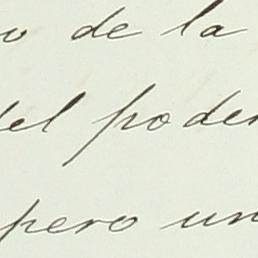 o de la
del poder
pero un